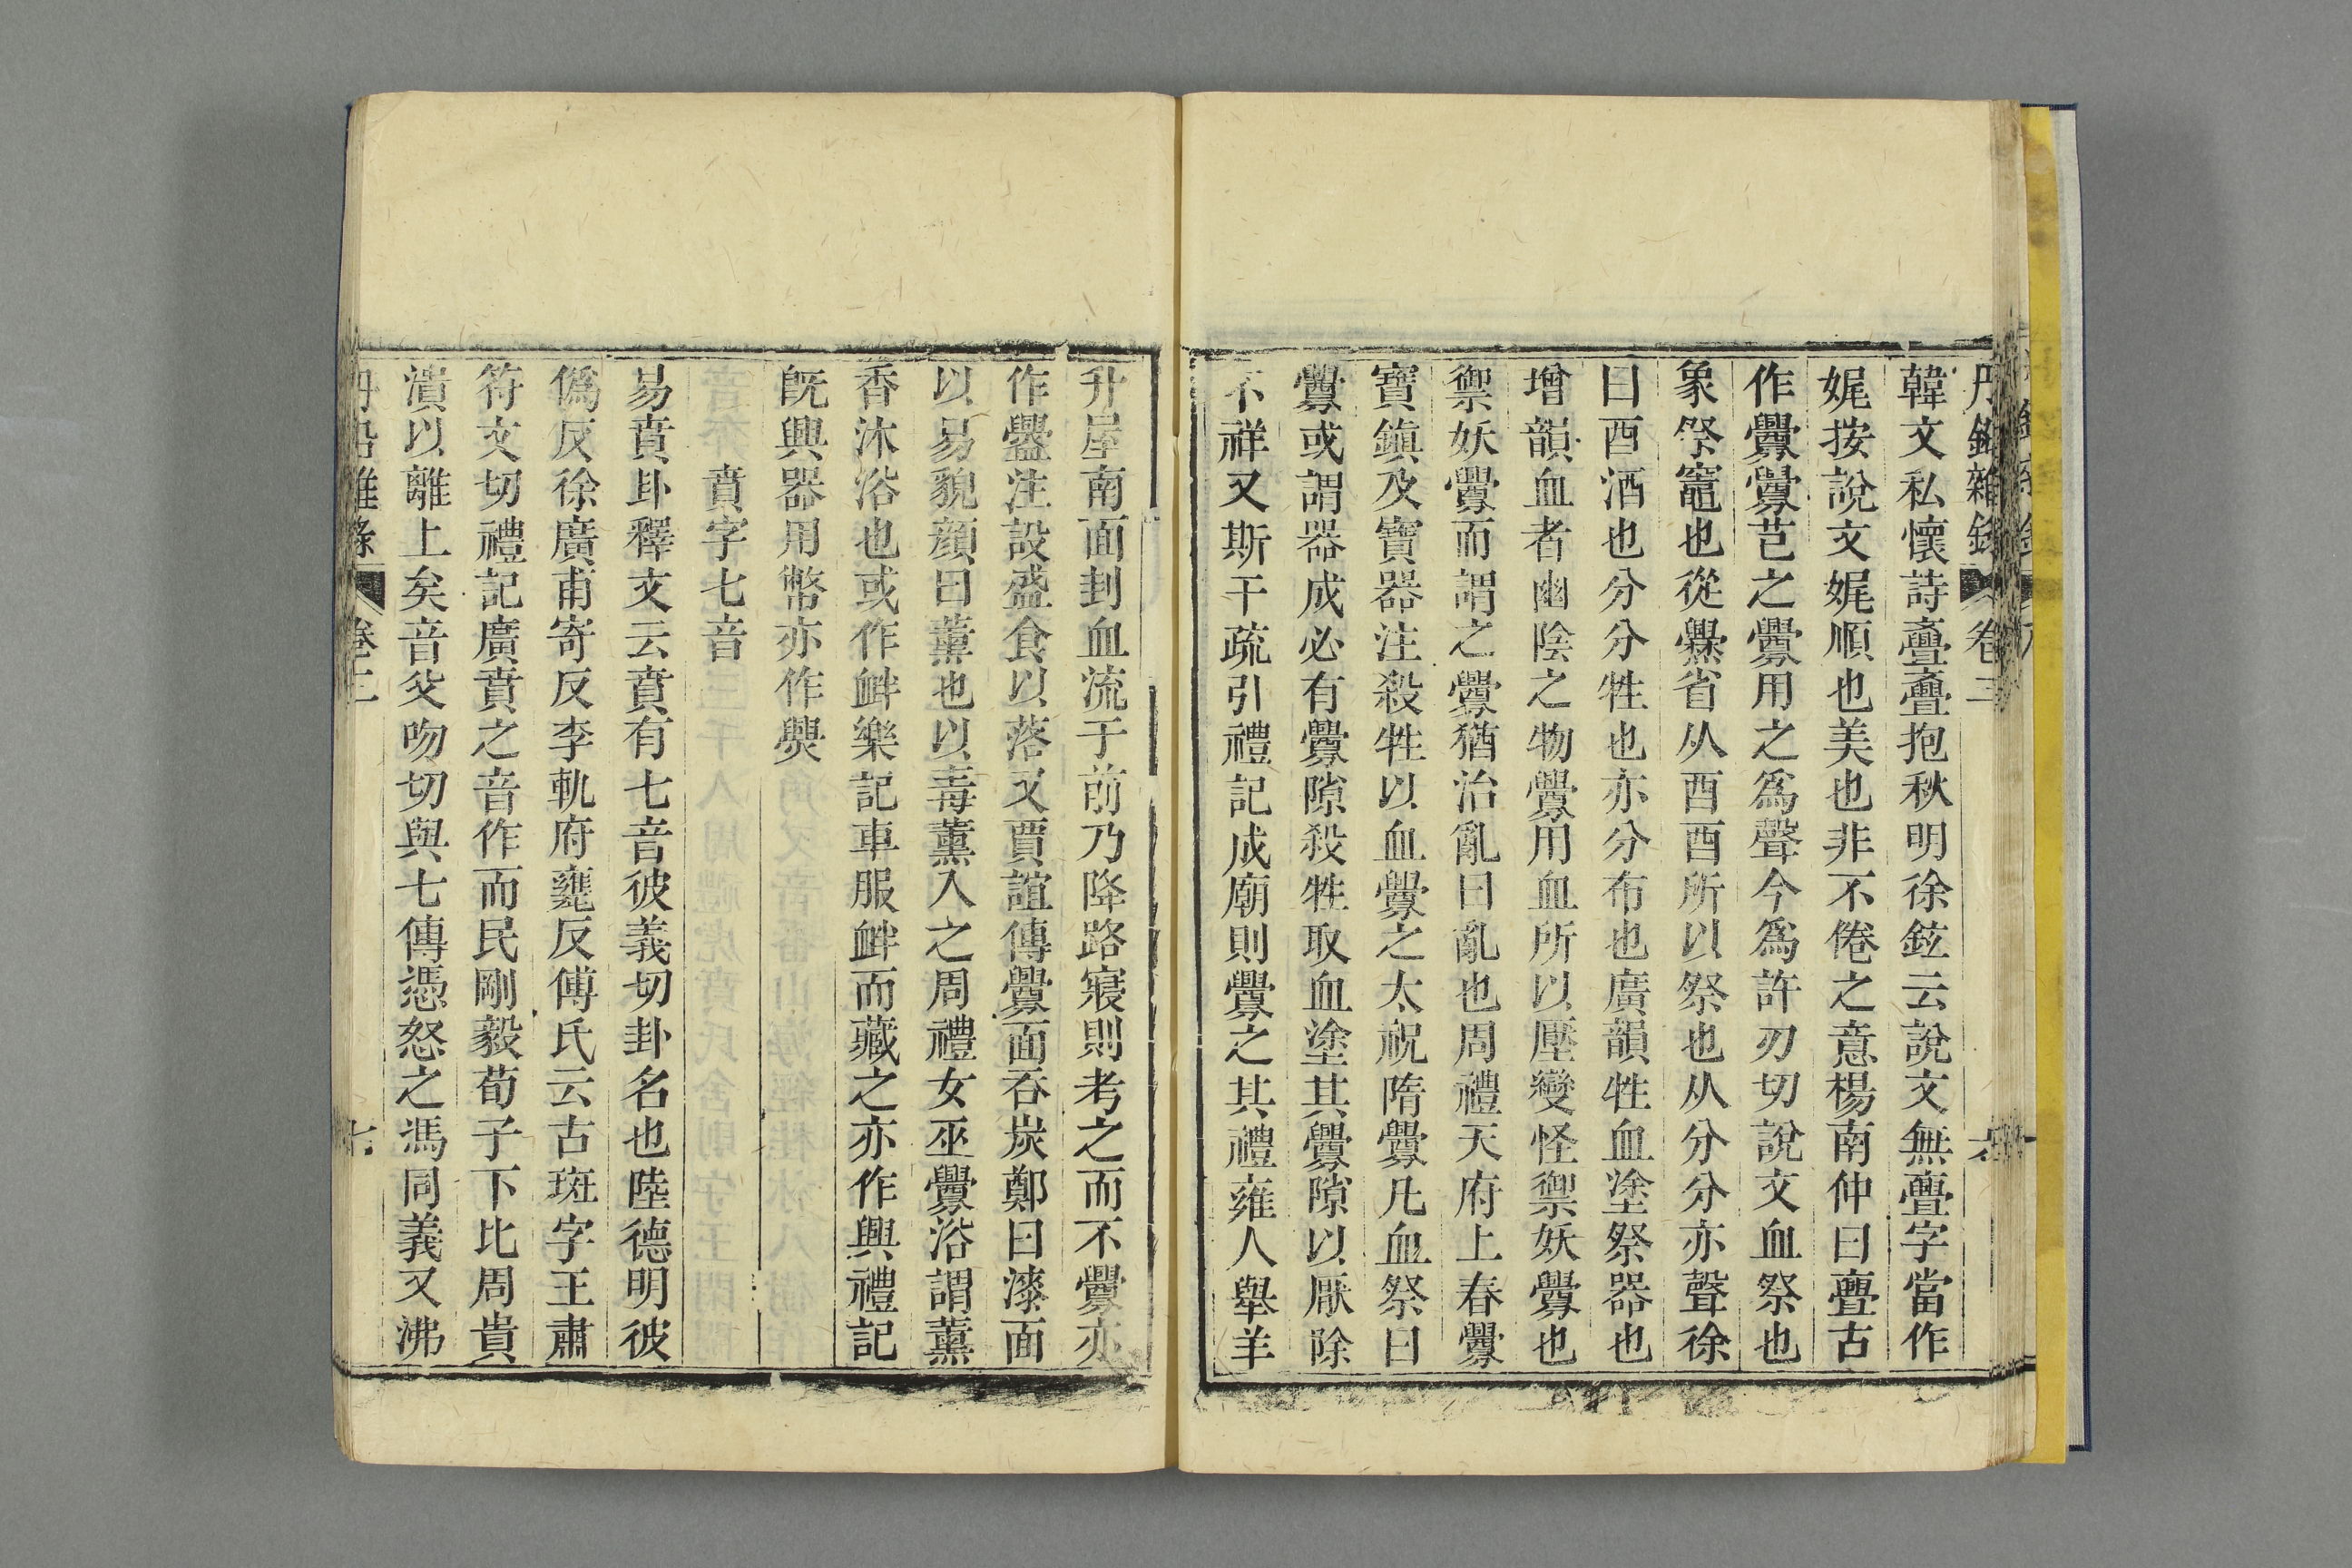 丹鉛雜錄 卷三 六
韓文私懷詩亹亹抱秋明徐鉉云說文無亹字當作
娓按說文娓順也美也非不倦之意楊南仲曰亹古
作釁釁芑之釁用之為聲今為許刃切說文血祭也
象祭竈也從爨省从酉酉所以祭也从分分亦聲徐
曰酉酒也分分牲也亦分布也廣韻牲血塗祭器也
增韻血者幽陰之物釁用血所以壓變怪禦妖釁也
禦妖釁而謂之釁猶治亂曰亂也周禮天府上春釁
寶鎮及寶器注殺牲以血釁之太祝隋釁凡血祭曰
釁或謂器成必有釁隙殺牲取血塗其釁隙以厭除
不祥又斯干疏引禮記成廟則釁之其禮雍人舉羊
升屋南面刲血流于前乃降路寢則考之而不釁亦
作衅注設盛食以落又賈誼傳釁面吞炭鄭曰漆面
以易貌顏曰薰也以毒薰入之周禮女巫釁浴謂薰
香沐浴也或作衅樂記車服衅而藏之亦作興禮記
既興器用幣亦作㸑
賁字七音
易賁卦釋文云賁有七音彼義切卦名也陸德明彼
偽反徐廣甫寄反李軌府甕反傅氏云古斑字王肅
符文切禮記廣賁之音作而民剛毅荀子下比周賁
潰以離上矣音父吻切與七傳憑怒之馮同義又沸
丹鉛雜錄 卷三 七